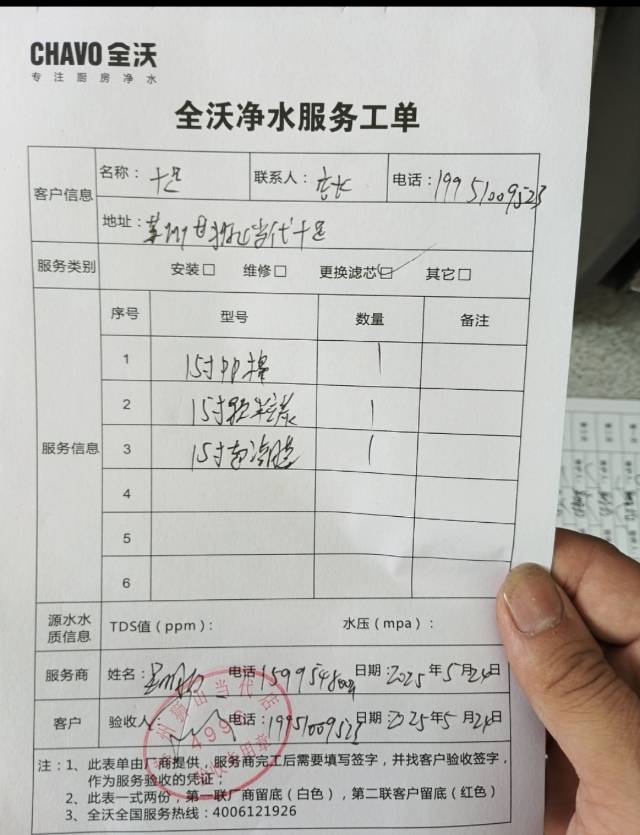 CHAVO 全沃
专注厨房净水
全沃净水服务工单
客户信息
名称：十足
联系人：店长
电话：19951009523
地址：苏州狮山当代十足
服务类别 安装□ 维修□ 更换滤芯☑ 其它□
服务信息
序号 型号 数量 备注
1 15寸PP棉 1
2 15寸颗粒炭 1
3 15寸 1
4
5
6
源水水质信息 TDS值（ppm）： 水压（mpa）：
服务商 姓名： 电话 日期：2025年5月24日
客户 验收人： 电话：19951009523 日期：2025年5月24日
州狮山当代店
4996
注：1、此表单由厂商提供，服务商完工后需要填写签字，并找客户验收签字，
作为服务验收的凭证；
2、此表一式两份，第一联厂商留底（白色），第二联客户留底（红色）
3、全沃全国服务热线：4006121926